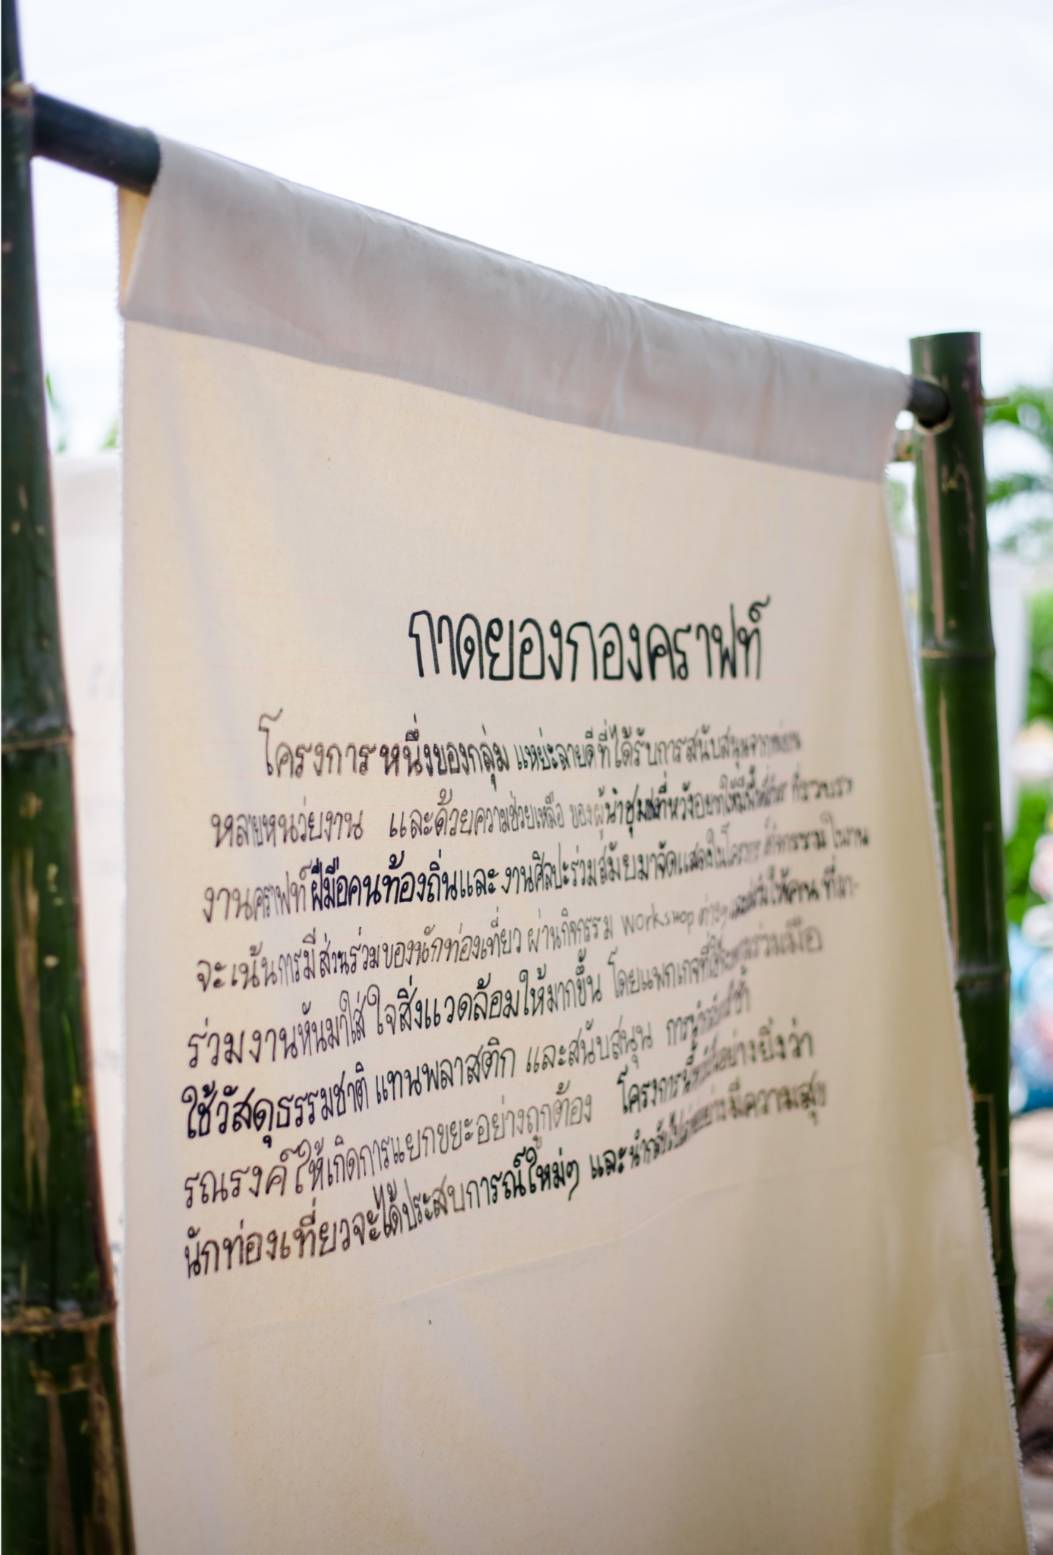 กาดยองกองคราฟท์
โครงการหนึ่งของกลุ่ม แหย่ะลายดีที่ได้รับการสนับสนุนจาก
หลายหน่วยงาน และด้วยความช่วยเหลือ ของผู้นำชุมชนที่หวัง
งานคราฟท์ฝีมือคนท้องถิ่นและ งานศิลปะร่วมสมัยมาจัดแสดงใน
จะเน้นการมีส่วนร่วมของนักท่องเที่ยว ผ่านกิจกรรม Workshop ต่างๆ ให้คน ที่มา
ร่วมงานหันมาใส่ใจสิ่งแวดล้อมให้มากขึ้น โดย ร่วมมือ
ใช้วัสดุธรรมชาติ แทนพลาสติก และสนับสนุน
รณรงค์ให้เกิดการแยกขยะอย่างถูกต้อง อย่างยิ่งว่า
นักท่องเที่ยวจะได้ประสบการณ์ใหม่ๆ และ อย่างมีความสุข